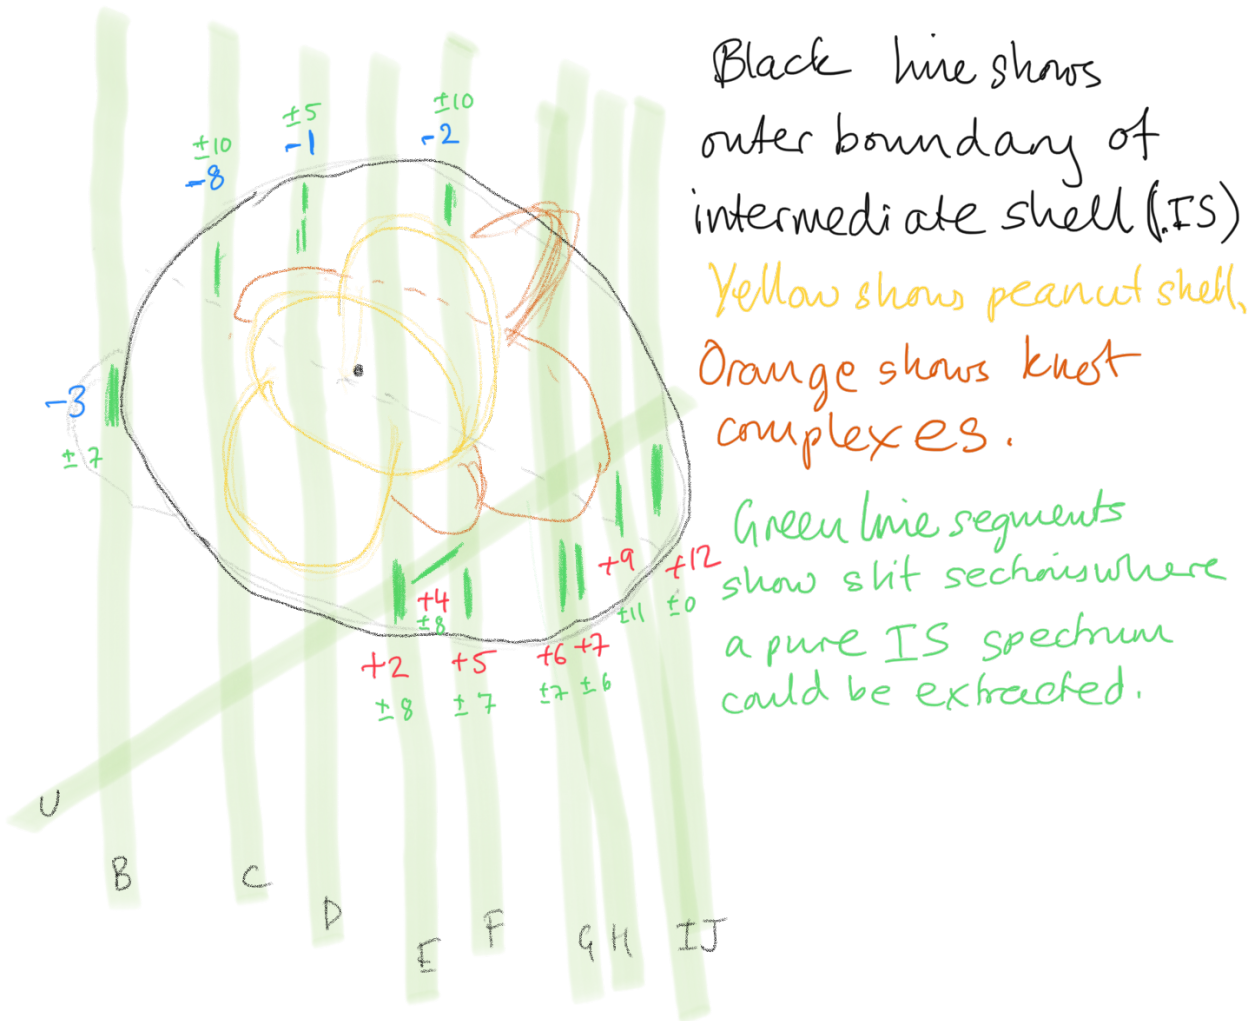 Black line shows
outer boundary of
intermediate shell (IS)
Yellow shows peanut shell.
Orange shows knot
complexes.
Green line segments
show slit sections where
a pure IS spectrum
could be extracted.
±10
-8
±5
-1
±10
-2
-3
±7
+4
±8
+2
±8
+5
±7
+6 +7
±7 ±6
+9
±11
+12
±0
U
B
C
D
E
F
G
H
IJ